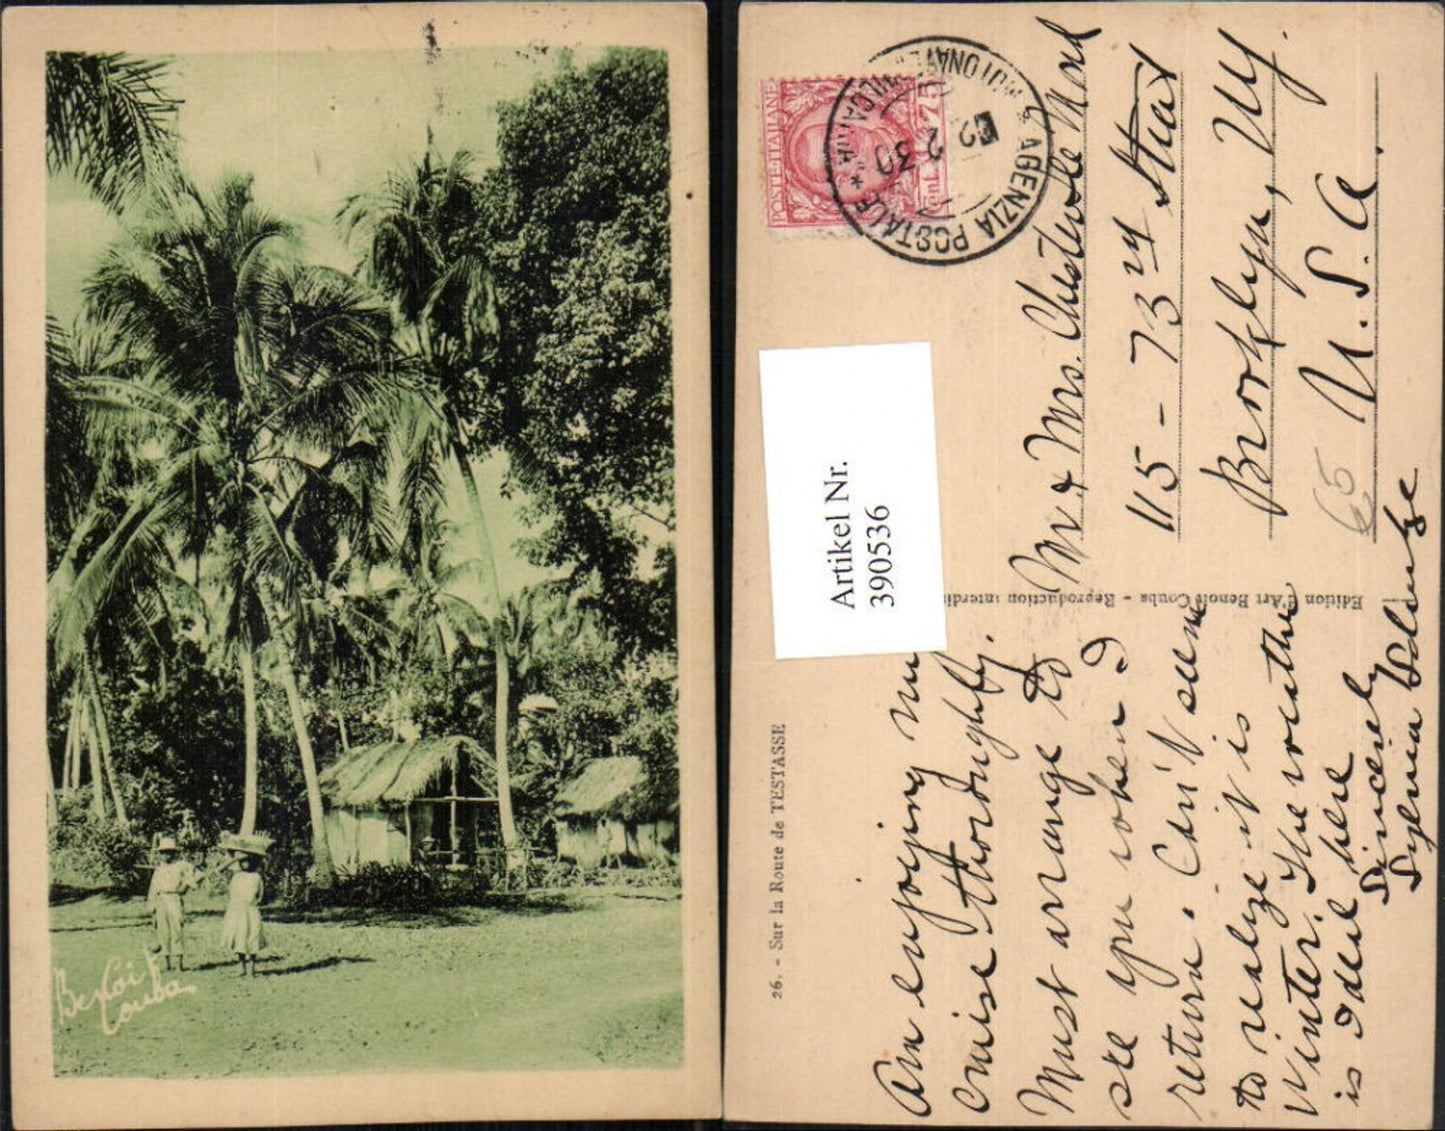 Benoit
Couba
26. - Sur la Route de TESTASSE
Edition d'Art Benoit Couba - Reproduction interdi
POSTE ITALIANE
Cent. 75
AGENZIA POSTALE
2 30
Artikel Nr.
390536
Am enjoying my
cruise thoroughly.
Must arrange to
see you when I
return. Can't seem
to realize it is
winter. The weather
is ideal here
Sincerely
Sylvia
Mr. & Mrs.
115 - 73rd Street
Brooklyn, N.Y.
U.S.A.
65